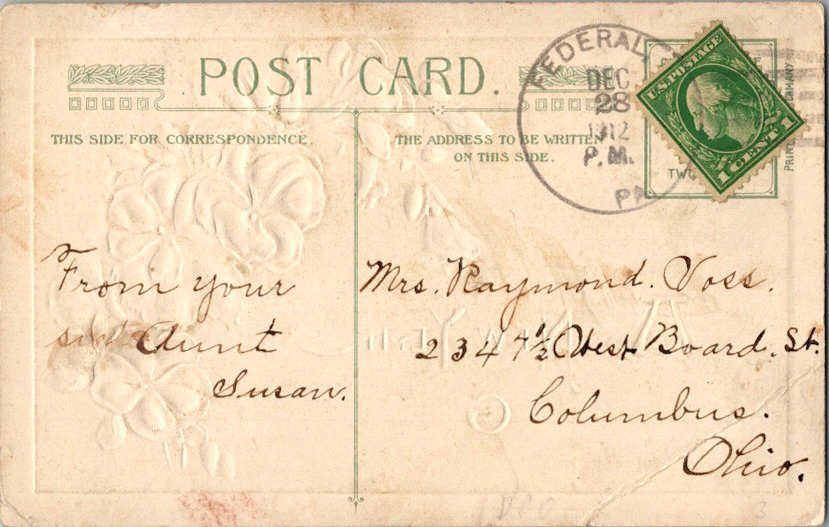 POST CARD.
THIS SIDE FOR CORRESPONDENCE.
THE ADDRESS TO BE WRITTEN
ON THIS SIDE.
FEDERAL
DEC
28
1912
P.M.
PA
U.S. POSTAGE
1 CENT 1
TW
From your
Aunt
Susan.
Mrs. Raymond. Voss.
2347½ West Board. St.
Columbus.
Ohio.